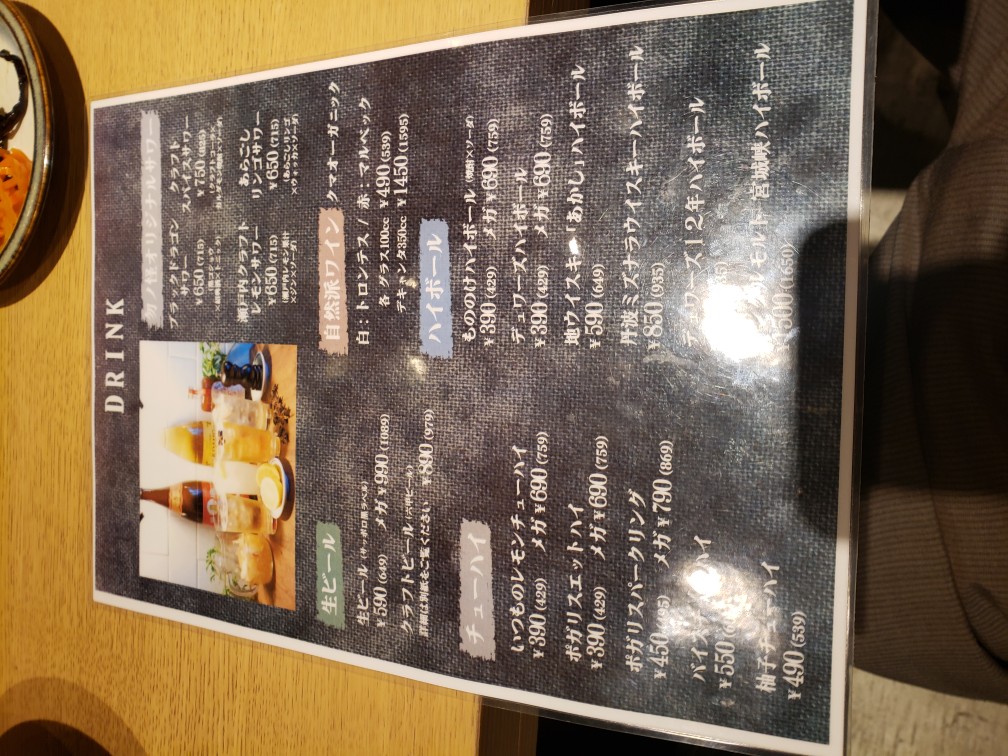 DRINK
オリジナルサワー
ブラックドラゴン
サワー
¥650(715)
クラフト
スパイスサワー
¥750
瀬戸内クラフト
レモンサワー
¥650(715)
あらごし
リンゴサワー
¥650(715)
生ビール
生ビール(サッポロ黒ラベル)
¥590(649) メガ¥990(1089)
クラフトビール
詳細は別紙をご覧ください ¥890(979)
自然派ワイン クマオーガニック
白:トロンテス / 赤:マルベック
各 グラス100cc ¥490(539)
デキャンタ350cc ¥1450(1595)
チューハイ
いつものレモンチューハイ
¥390(429) メガ¥690(759)
ポガリスエットハイ
¥390(429) メガ¥690(759)
ポガリスパークリング
¥450 メガ¥790(869)
¥550
柚子チューハイ
¥490(539)
ハイボール
もののけハイボール(焼酎×ソーダ)
¥390(429) メガ¥690(759)
デュワーズハイボール
¥390(429) メガ¥690(759)
地ウイスキー「あかし」ハイボール
¥590(649)
丹波ミズナラウイスキーハイボール
¥850(935)
デュワーズ12年ハイボール
モルト 宮城峡ハイボール